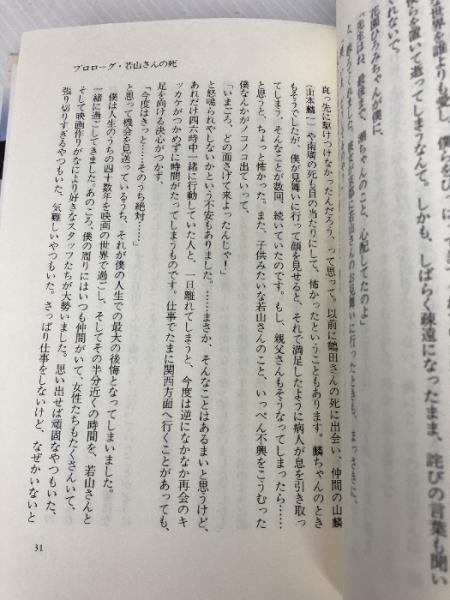 な世界を誰よりも愛し、僕らをひ
僕らを置いて逝ってしまうなんて。しかも、しばらく疎遠になったまま、詫びの言葉も聞い
くれないで。
花園ひろみちゃんが僕に、
「先生はね、最後まで、潮ちゃんのこと、心配してたのよ」
プロローグ・若山さんの死
真っ先に駆けつけなかったんだろう、って思って。以前に鶴田さんの死に出会い、仲間の山麟
（山本麟一）や南廣の死も目の当たりにして、怖かったということもあります。麟ちゃんのとき
もそうでしたが、僕が見舞いに行って顔を見せると、それで満足したように病人が息を引き取っ
てしまう。そんなことが数回、続いていたのです。もし、親父さんもそうなってしまったら……
と思うと、ちょっと怖かった。また、子供みたいな若山さんのこと、いっぺん不興をこうむった
僕なんかがノコノコ出ていって、
「いまごろ、どの面さげて来よったんじゃ！」
と怒鳴られやしないかという不安もありました。……まさか、そんなことはあるまいと思うけど、
あれだけ四六時中一緒に行動していた人と、一日離れてしまうと、今度は逆になかなか再会のキ
ッカケがつかめずに時間がたってしまうものです。仕事でたまに関西方面へ行くことがあっても、
足を向ける決心がつかず、
「今度はきっと……そのうち絶対……」
と思って機会を見送っているうち、それが僕の人生での最大の後悔となってしまいました。
僕は人生のうちの四十数年を映画の世界で過ごし、そしてその半分近くの時間を、若山さんと
一緒に過ごしてきました。あのころ、僕の周りにはいつも仲間がいて、女性たちもたくさんいて、
そして映画作りがなにより好きなスタッフたちが大勢いました。思い出せば頑固なやつもいた、
張り切りすぎるやつもいた、気難しいやつもいた。さっぱり仕事をしないけど、なぜかいないと
31